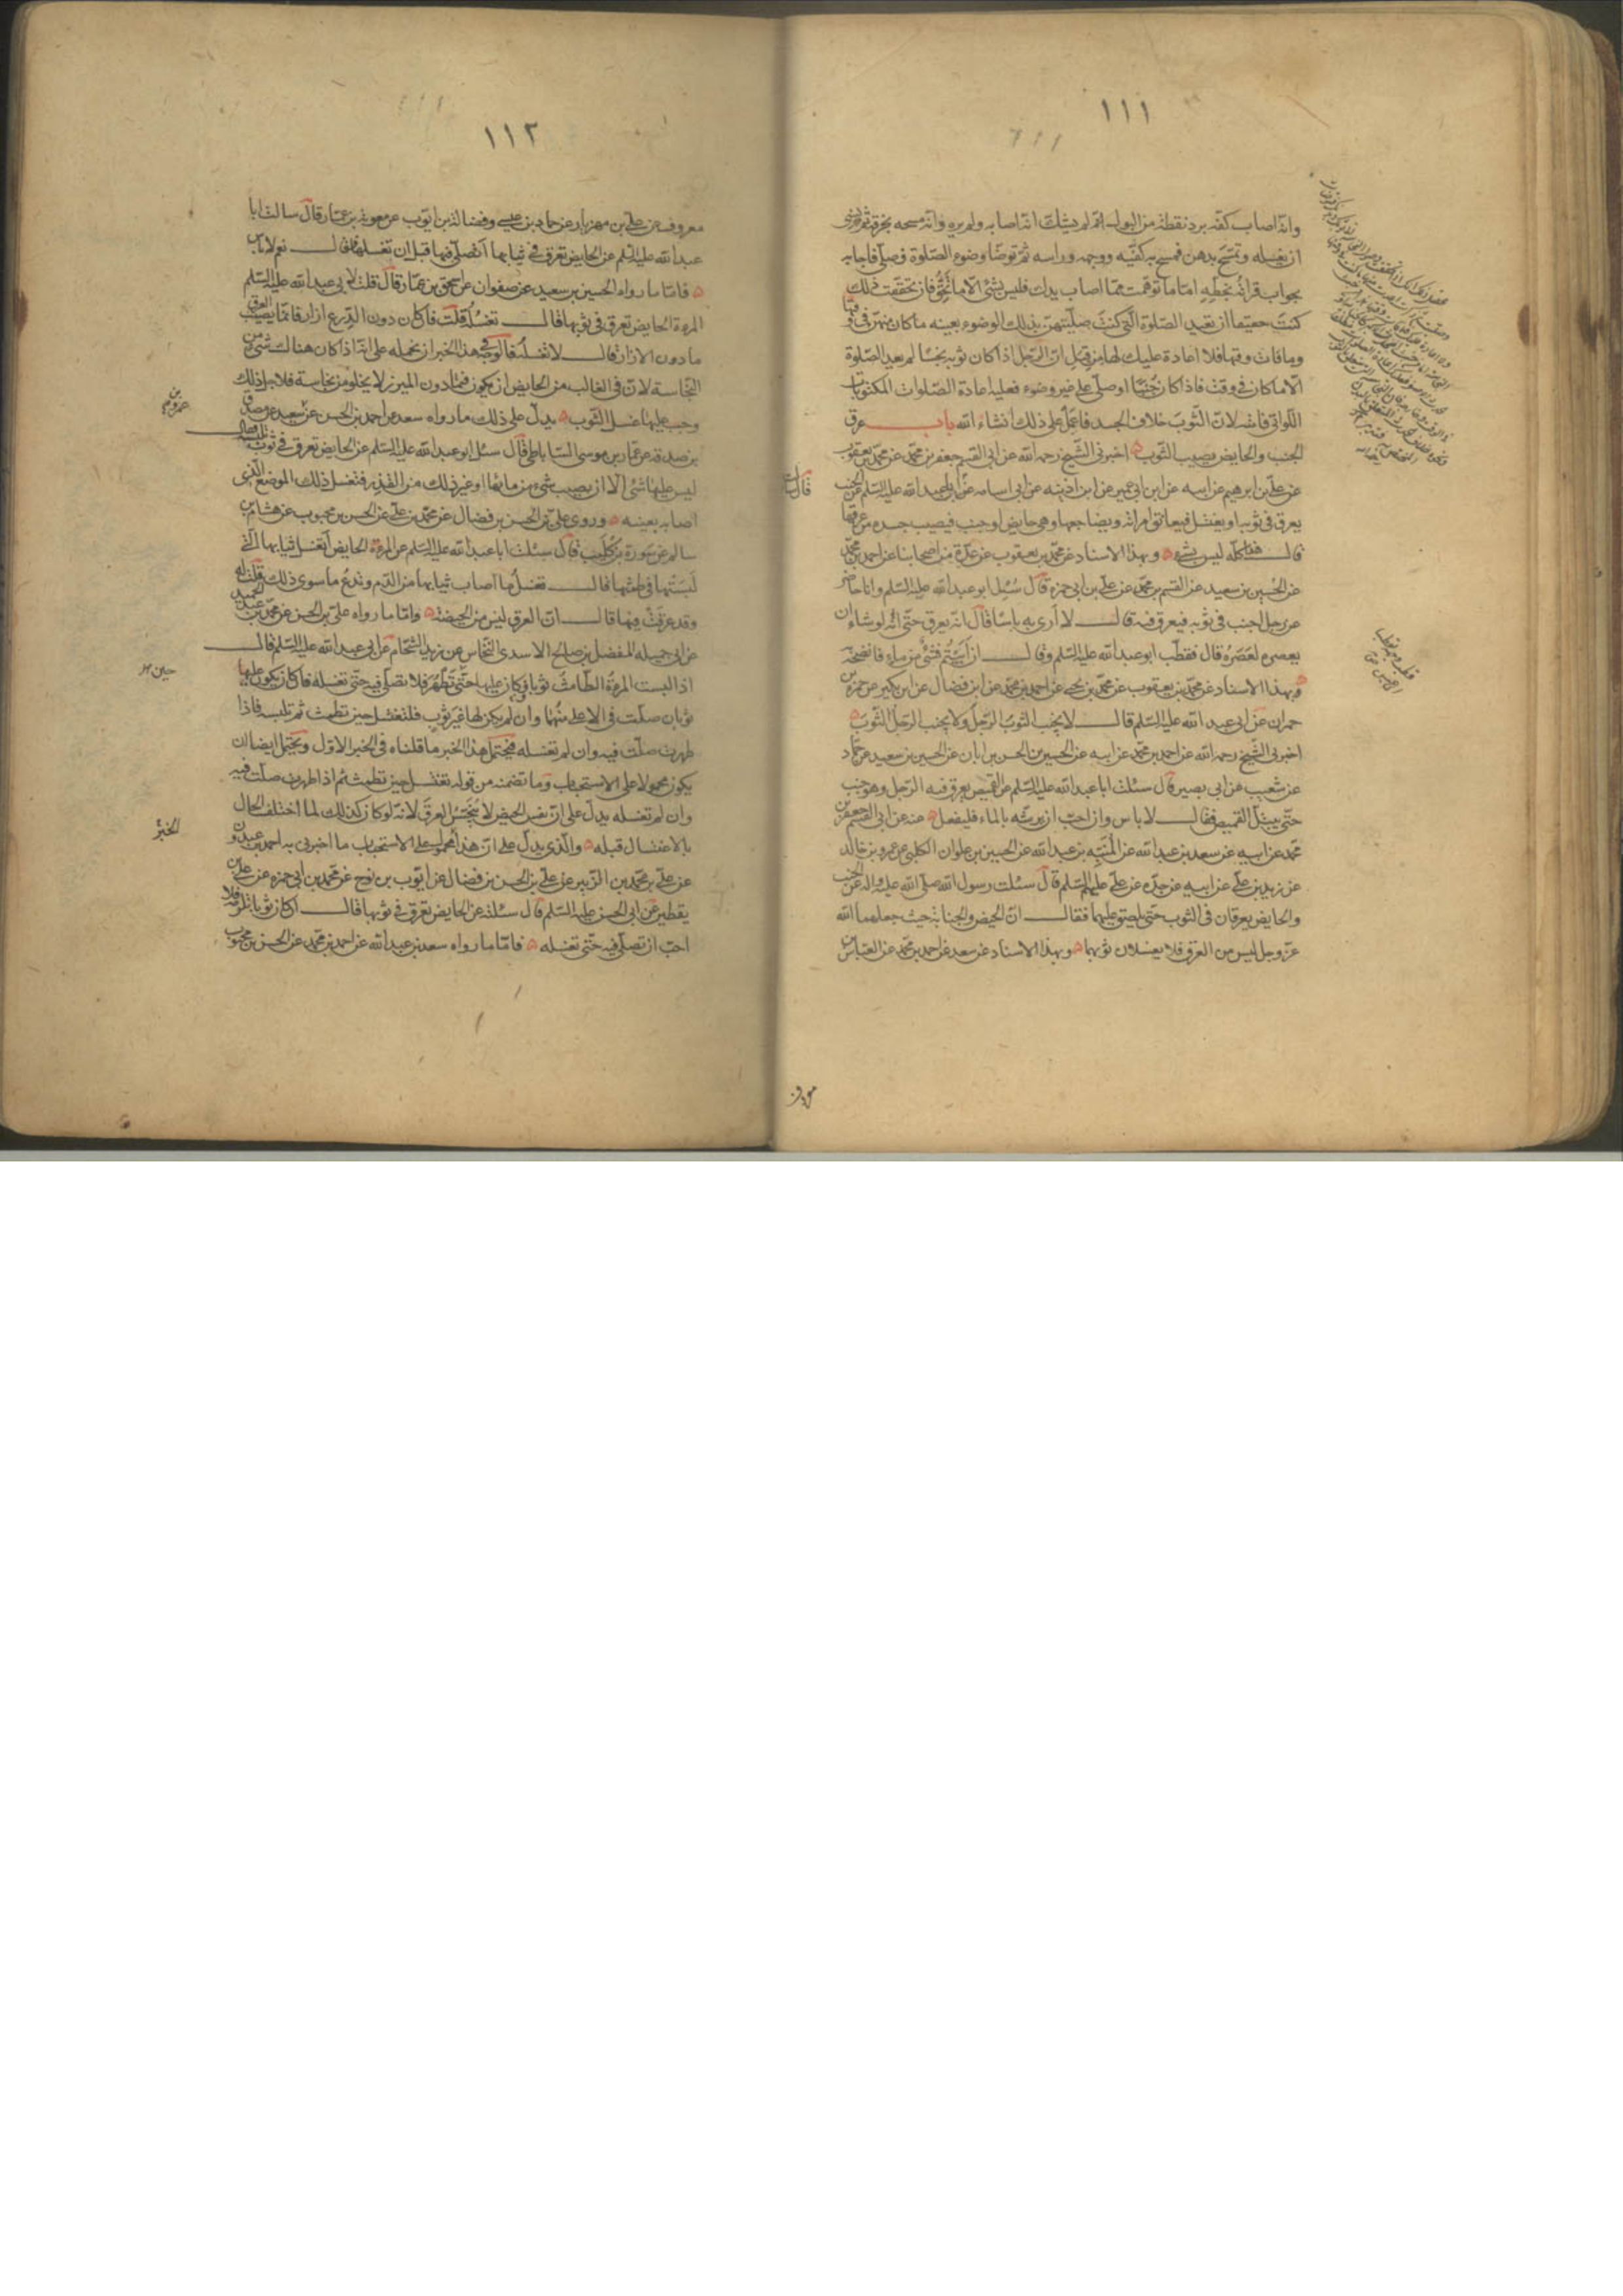 ١١١
وانه اصاب كفه برد نقطة من البول لم يشك انه اصابه ولم يره وانه مسحه بخرقة ثم نسى
ان يغسله وتمسح بدهن فمسح به كفيه ووجهه وراسه ثم توضا وضوء الصلوة فصلى فاجابه
بجواب قراته بخطه اما ما توهمت مما اصاب يدك فليس بشئ الا ما تحقق فان تحققت ذلك
كنت حقيقا ان تعيد الصلوة التى كنت صليتهن بذلك الوضوء بعينه ما كان منهن فى وقتها
وما فات وقتها فلا اعادة عليك لها من قبل ان الرجل اذا كان ثوبه نجسا لم يعد الصلوة
الا ما كان فى وقت فاذا كان جنبا او صلى على غير وضوء فعليه اعادة الصلوات المكتوبات
اللواتى فاتته لان الثوب خلاف الجسد فاعمل على ذلك انشاء الله باب عرق
الجنب والحايض يصيب الثوب اخبرنى الشيخ رحمه الله عن ابى القسم جعفر بن محمد عن محمد بن يعقوب
عن على بن ابرهيم عن ابيه عن ابن ابى عمير عن ابن اذينه عن ابى اسامه عن ابى عبد الله عليه السلم عن الجنب
يعرق فى ثوبه او يغتسل فيعانق امراته ويضاجعها وهى حايض او جنب فيصيب جسده من عرقها
قال هذا كله ليس بشئ وبهذا الاسناد عن محمد بن يعقوب عن عدة من اصحابنا عن احمد بن محمد
عن الحسين بن سعيد عن القسم بن محمد عن على بن ابى حمزة قال سئل ابو عبد الله عليه السلم وانا حاضر
عن رجل اجنب فى ثوبه فيعرق فيه قال لا ارى به باسا قال انه يعرق حتى انه لو شاء ان
يعصره لعصره قال فقطب ابو عبد الله عليه السلم وقال ان ابيتم فشئ من ماء فانضحه
وبهذا الاسناد عن محمد بن يعقوب عن محمد بن يحيى عن احمد بن محمد عن ابن فضال عن ابن بكير عن حمزة بن
حمران عن ابى عبد الله عليه السلم قال لا يجنب الثوب الرجل ولا يجنب الرجل الثوب
اخبرنى الشيخ رحمه الله عن احمد بن محمد عن ابيه عن الحسين بن الحسن بن ابان عن الحسين بن سعيد عن حماد
عن شعيب عن ابى بصير قال سئلت ابا عبد الله عليه السلم عن القميص يعرق فيه الرجل وهو جنب
حتى يبتل القميص فقال لا باس وان احب ان يرشه بالماء فليفعل عنه عن ابى القسم جعفر بن
محمد عن ابيه عن سعد بن عبد الله عن المنبه بن عبد الله عن الحسين بن علوان الكلبى عن عمرو بن خالد
عن زيد بن على عن ابيه عن جده عن على عليهم السلم قال سئلت رسول الله صلى الله عليه واله عن الجنب
والحايض يعرقان فى الثوب حتى يلصق عليهما فقال ان الحيض والجنابة حيث جعلهما الله
عز وجل ليس من العرق فلا يغسلان ثوبهما وبهذا الاسناد عن سعد عن احمد بن محمد عن العباس بن
معروف
١١٢
معروف عن على بن مهزيار عن حماد بن عيسى وفضالة بن ايوب عن معوية بن عمار قال سالت ابا
عبد الله عليه السلم عن الحايض تعرق فى ثيابها اتصلى فيها قبل ان تغسلها فقال نعم لا باس
فاما ما رواه الحسين بن سعيد عن صفوان عن اسحق بن عمار قال قلت لابى عبد الله عليه السلم
المرءة الحايض تعرق فى ثوبها قال تغسله قلت فان كان دون الدرع ازار فانما يصيب العرق
ما دون الازار قال لا تغسله فالوجه فى هذا الخبر ان نحمله على انه اذا كان هناك شئ من
النجاسة لان فى الغالب من الحايض ان يكون فيما دون الميزر لا يخلو من نجاسة فلاجل ذلك
وجب عليها غسل الثوب يدل على ذلك ما رواه سعد عن احمد بن الحسن عن سعيد عن مصدق
بن صدقه عن عمار بن موسى الساباطى قال سئل ابو عبد الله عليه السلم عن الحايض تعرق فى ثوب تلبسه فقال
ليس عليها شئ الا ان يصيب شئ من مائها او غير ذلك من القذر فتغسل ذلك الموضع الذى
اصابه بعينه وروى على بن الحسن بن فضال عن محمد بن على عن الحسن بن محبوب عن هشام بن
سالم عن سورة بن كليب قال سئلت ابا عبد الله عليه السلم عن المرءة الحايض اتغسل ثيابها التى
لبستها فى طمثها قال تغسل ما اصاب ثيابها من الدم وتدع ما سوى ذلك قلت له
وقد عرقت فيها قال ان العرق ليس من الحيضة واما ما رواه على بن الحسن عن محمد بن عبد الحميد
عن ابى جميله المفضل بن صالح الاسدى النخاس عن زيد الشحام عن ابى عبد الله عليه السلم قال
اذا لبست المرءة الطامث ثوبا فكان عليها حتى تطهر فلا تصلى فيه حتى تغسله فان كان يكون عليها
ثوبان صلت فى الاعلى منهما وان لم يكن لها غير ثوب فلتغتسل حين تطمث ثم تلبسه فاذا
طهرت صلت فيه وان لم تغسله فيحتمل هذا الخبر ما قلناه فى الخبر الاول ويحتمل ايضا ان
يكون محمولا على الاستحباب وما تضمنه من قوله تغتسل حين تطمث ثم اذا طهرت صلت فيه
وان لم تغسله يدل على ان نفس الحيض لا ينجس العرق لانه لو كان كذلك لما اختلف الحال
بالاغتسال قبله والذى يدل على ان هذا محمول على الاستحباب ما اخبرنى به احمد بن عبدون
عن على بن محمد بن الزبير عن على بن الحسن بن فضال عن ايوب بن نوح عن محمد بن ابى حمزه عن على بن
يقطين عن ابى الحسن عليه السلم قال سئلته عن الحايض تعرق فى ثوبها قال ان كان ثوبا تلزمه فلا
احب ان تصلى فيه حتى تغسله فاما ما رواه سعد بن عبد الله عن احمد بن محمد عن الحسن بن محبوب
الخبر